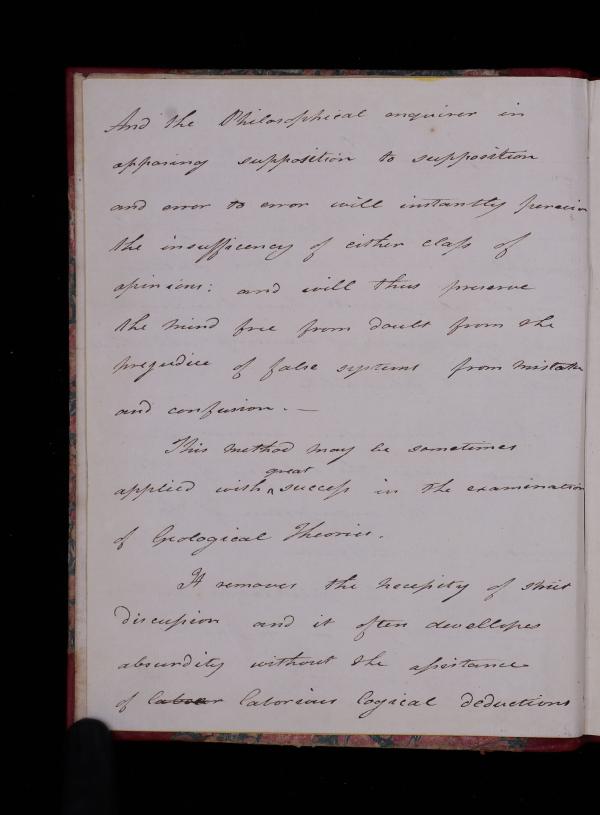 And the Philosophical enquirer in
opposing supposition to supposition
and error to error will instantly perceive
the insufficency of either class of
opinions: and will thus preserve
the mind free from doubt from the
prejudice of false systems from mistake
and confusion. —
This method may be sometimes
applied with ^great success in the examination
of Geological Theories.
It removes the necessity of strict
discussion and it often develloppes
absurdity without the assistance
of labour laborious logical deductions